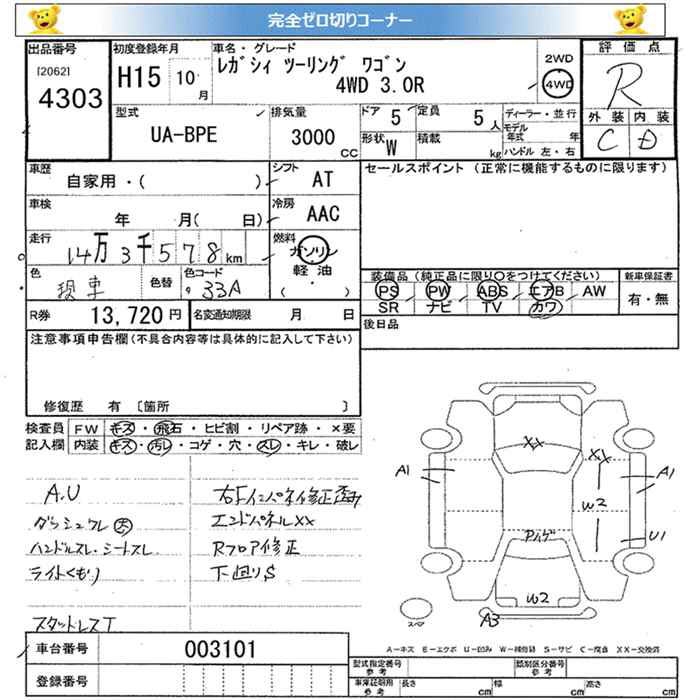 完全ゼロ切りコーナー
出品番号
[2062]
4303
初度登録年月
H15 10月
車名・グレード
レガシィ ツーリング ワゴン
4WD 3.0R
2WD
4WD
評価点
R
外装 内装
C D
型式
UA-BPE
排気量
3000 CC
ドア 5
定員 5人
形状 W
積載 kg
ディーラー・並行
モデル年式 年
ハンドル 左・右
車歴
自家用・( )
シフト
AT
車検
年 月( 日)
冷房
AAC
走行
14万3千578km
燃料
ガソリン
軽油
( )
色
色替
色コード
33A
セールスポイント (正常に機能するものに限ります)
装備品(純正品に限り○をつけてください)
PS PW ABS エアB AW
SR ナビ TV カワ
新車保証書
有・無
R券 13,720円
名変通知期限 月 日
後日品
注意事項申告欄(不具合内容等は具体的に記入して下さい)
修復歴 有 〔箇所 〕
検査員
記入欄
FW キズ・飛石・ヒビ割・リペア跡・×要
内装 キズ・汚レ・コゲ・穴・スレ・キレ・破レ
A.U
ハンドルスレ・シートスレ
ライトくもり
スタットレスT
エンドパネルXX
Rフロア修正
下廻りS
XX
XX
A1
A1
W2
U1
W2
A3
スペア
A-キズ E-エクボ U-凹み W-補修跡 S-サビ C-腐食 XX-交換済
車台番号
003101
登録番号
型式指定番号
参考
類別区分番号
参考
車庫証明用
参考
長さ cm
幅 cm
高さ cm